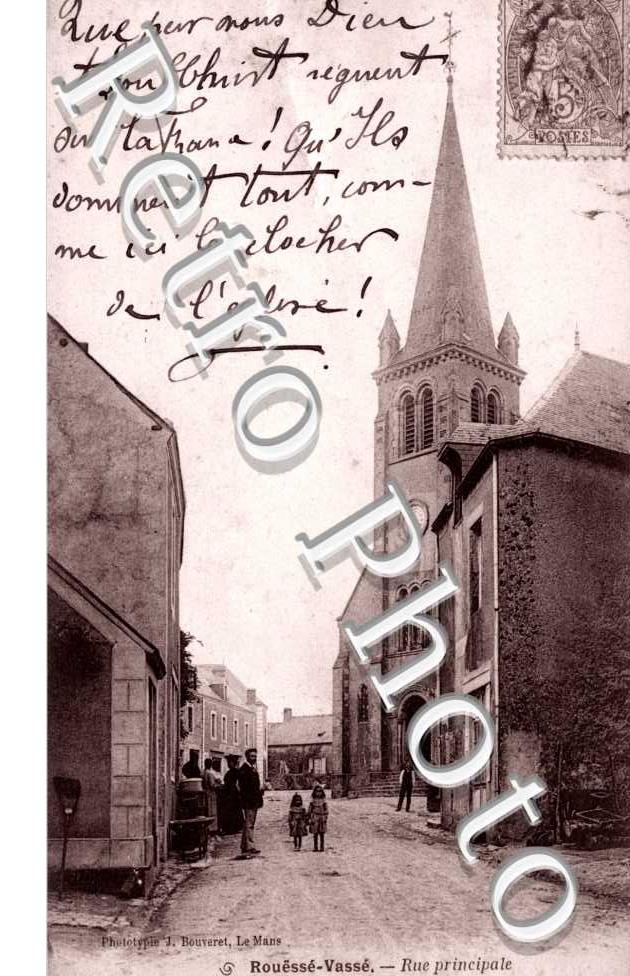 Que pour nous Dieu
et son Christ règnent
sur la France! Qu'Ils
dominent tout, com-
me ici le clocher
de l'église!
5
POSTES
Retro Photo
Phototypie J. Bouveret, Le Mans
Rouëssé-Vassé. — Rue principale